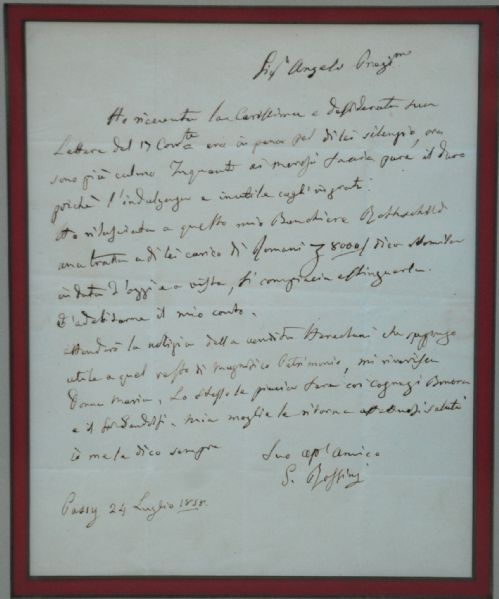 Sigr Angelo Pregmo
Ho ricevuta la Carissima e desiderata sua
Lettera del 17 Corrte ero in pena pel di lei silenzio, ora
sono più calmo. Inquanto ai morosi faccia pure il duro
poichè l'indulgenza è inutile cogl'ingrati.
Ho rilasciata a questo mio Banchiere Rothschild
una tratta a di lei carico di Romani 8000/ dico ottomila
in data d'oggi e a vista, si compiacia estinguerla
d'adebitarne il mio conto.
Attenderò la notizia della vendita che suppongo
utile a quel resto di magnifico Patrimonio, mi riverisca
Donna Maria, Lo stesso le piaccia fare coi Bonora
e il mia moglie le ritorna affettuosi saluti
io me le dico sempre
Suo afft amico
G. Rossini
Passy 24 Luglio 1858.